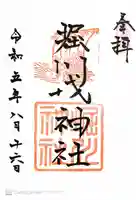 奉拝
堀川戎神社
令和五年八月十六日